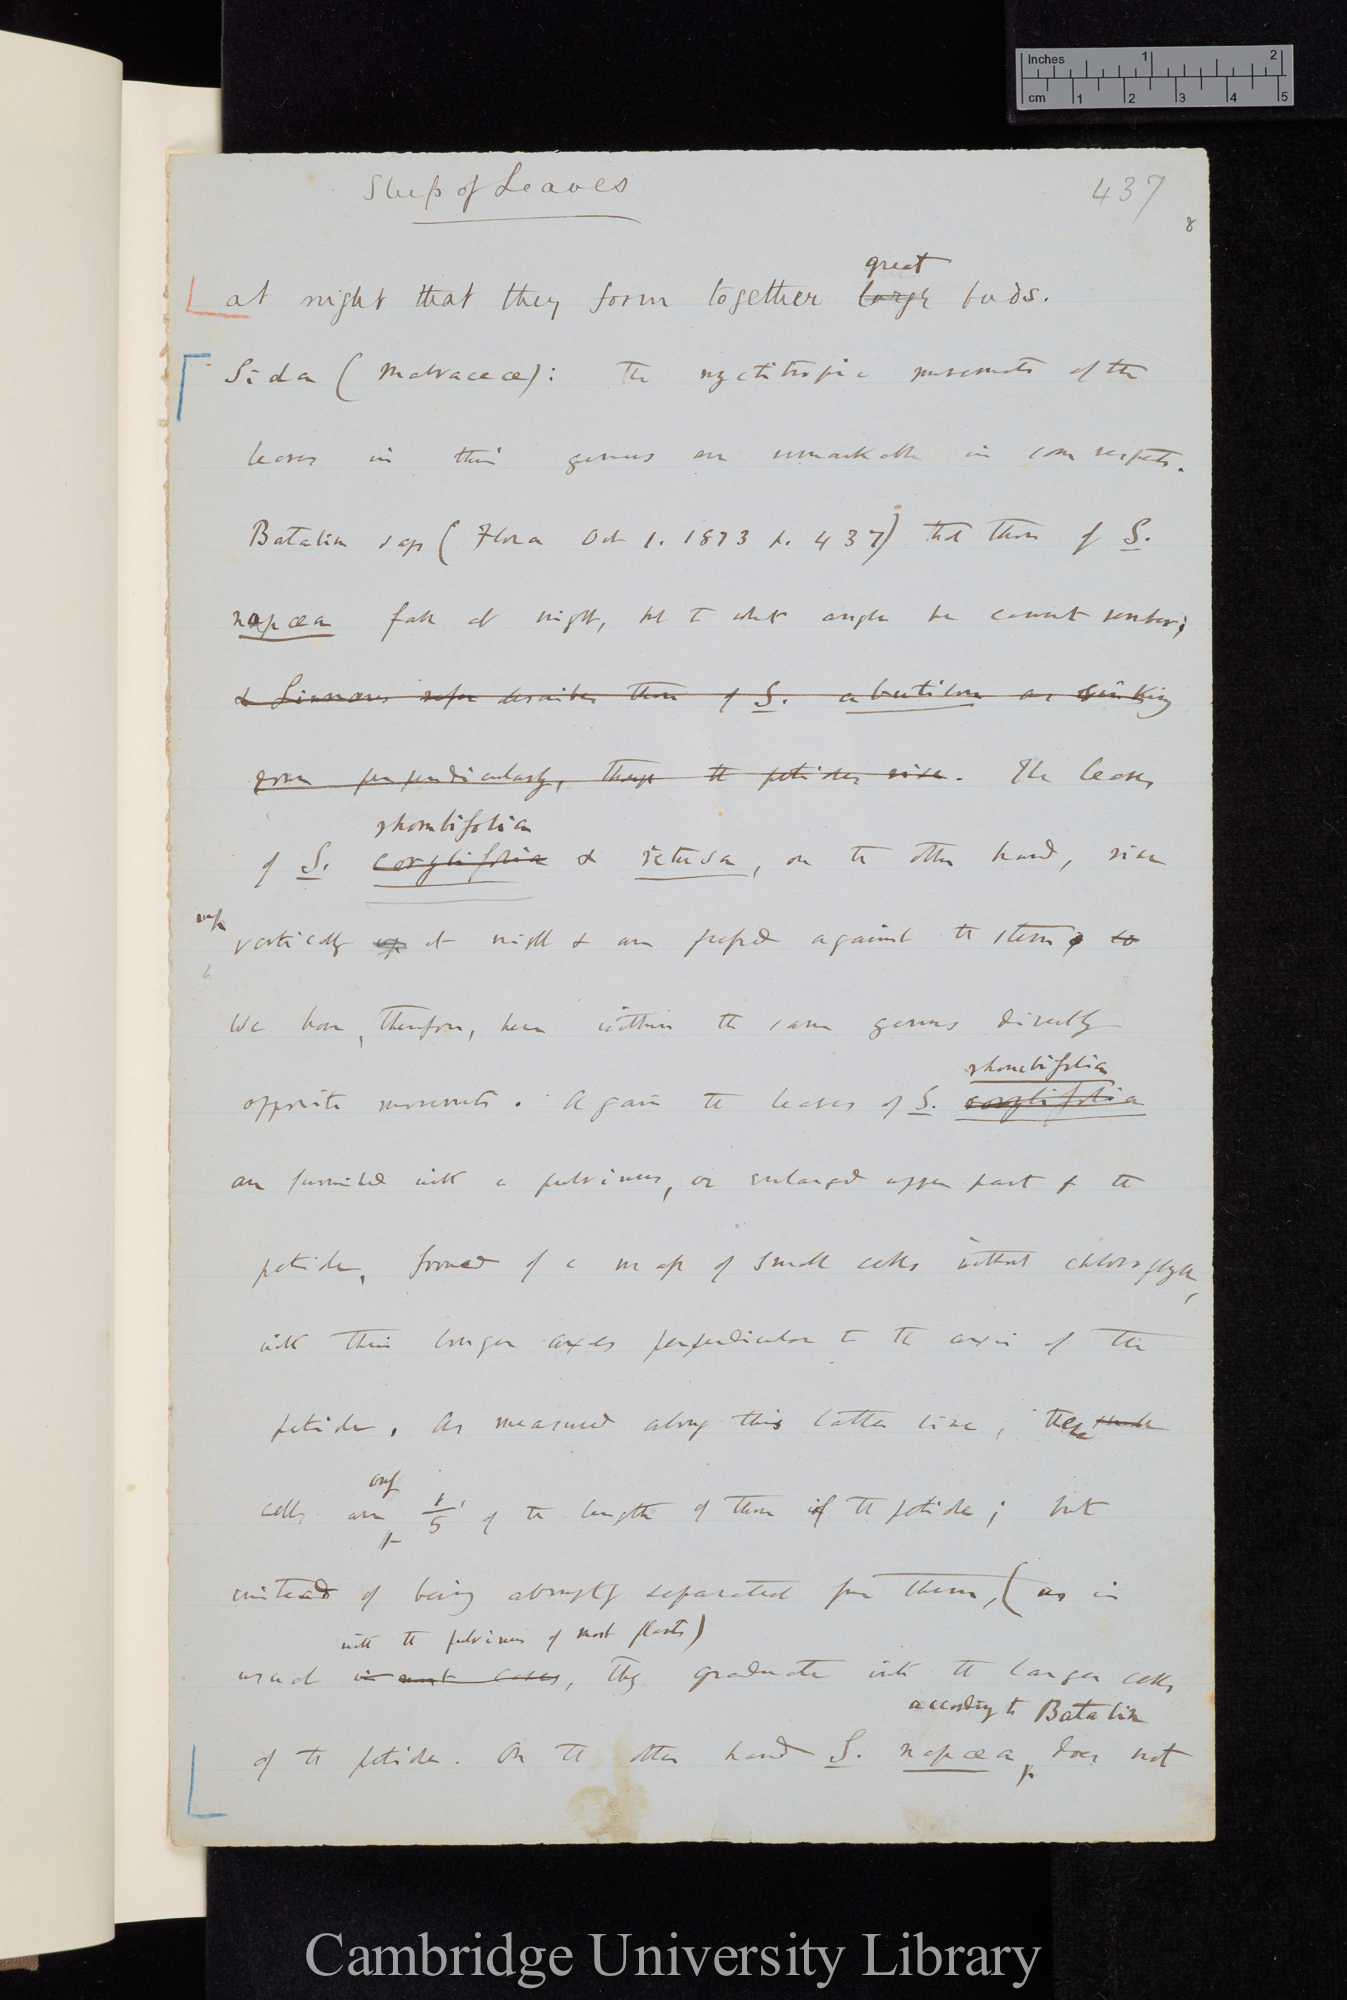 Inches 1 2
cm 1 2 3 4 5
Sleep of Leaves
437
8
great
at night that they form together large buds.
Sida (Malvaceæ): the nyctitropic movements of the
leaves in this genus are remarkable in some respects.
Batalin says (Flora Oct 1. 1873 p. 437) that those of S.
napæa fall at night, but to what angle he cannot remember;
& Linnæus describes those of S. abutilon as sinking
even perpendicularly, though the petioles rise. The leaves
rhombifolia
of S. corylifolia & retusa, on the other hand, rise
up
vertically up at night & are pressed against the stem, so
We have, therefore, here within the same genus directly
rhombifolia
opposite movements. Again the leaves of S. corylifolia
are furnished with a pulvinus, or enlarged upper part of the
petiole, formed of a mass of small cells without chlorophyll,
with their longer axes perpendicular to the axis of the
petiole. As measured along this latter line, these
only
cells are 1/5 of the length of those of the petiole; but
instead of being abruptly separated from them, (as is
with the pulvinus of most plants)
usual in most cases, they graduate into the larger cells
according to Batalin
of the petiole. On the other hand S. napæa, does not
Cambridge University Library